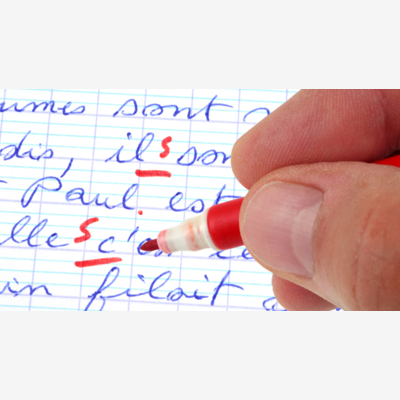 umes sont
dis, ils son
Paul est
lle s c'e
in filait